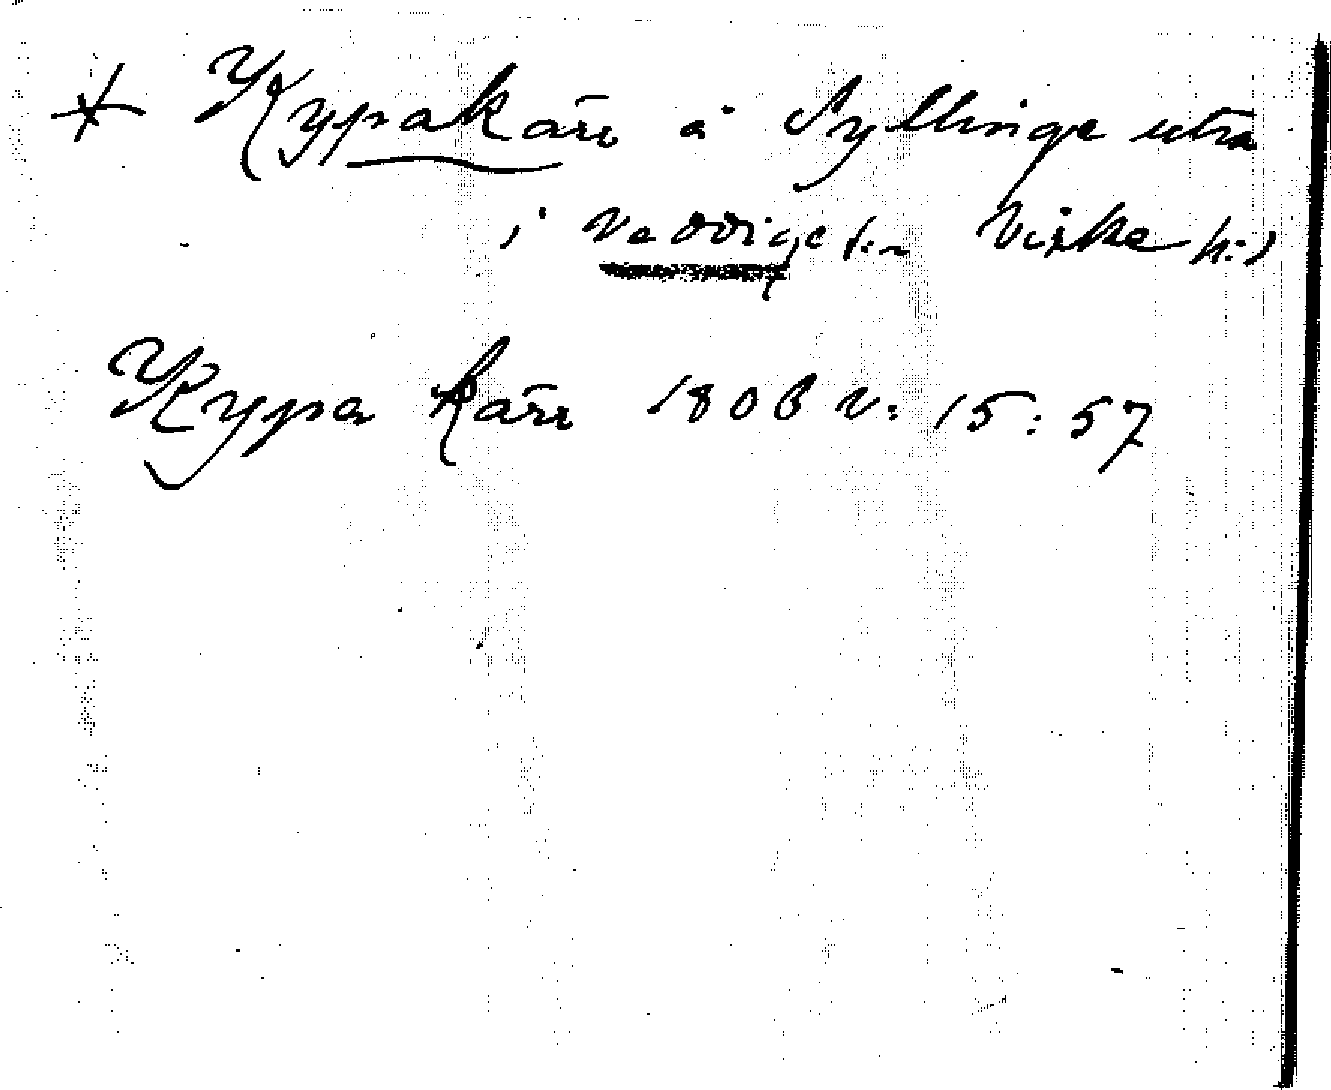 * Kypakärr å Syllinge utra
i Veddige s:n Viske h:d
Kypa kärr 1806 v: 15:57